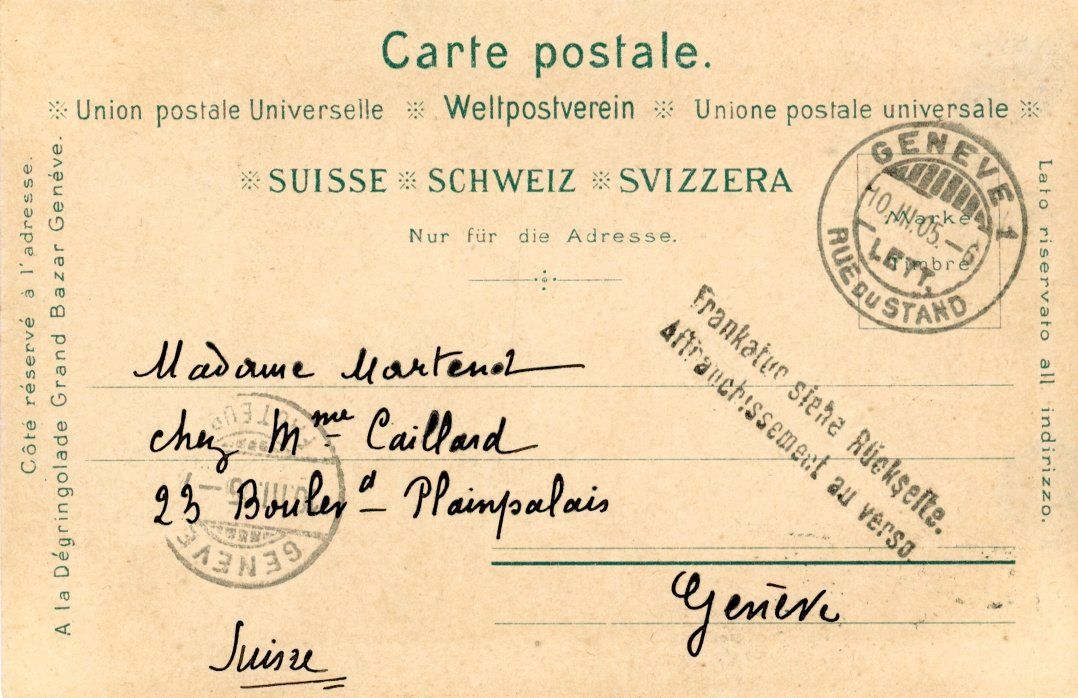 Carte postale.
※ Union postale Universelle ※ Weltpostverein ※ Unione postale universale ※
※ SUISSE ※ SCHWEIZ ※ SVIZZERA
Nur für die Adresse.
Côté réservé à l'adresse.
A la Dégringolade Grand Bazar Genève.
Lato riservato all indirizzo.
Marke
Timbre
GENEVE 1
10.III.05.–6
LETT.
RUE DU STAND
Frankatur siehe Rückseite.
Affranchissement au verso
Madame Martend
chez Mme Caillard
23 Boulevd Plainpalais
Genève
Suisse
GENEVE
FACTEURS